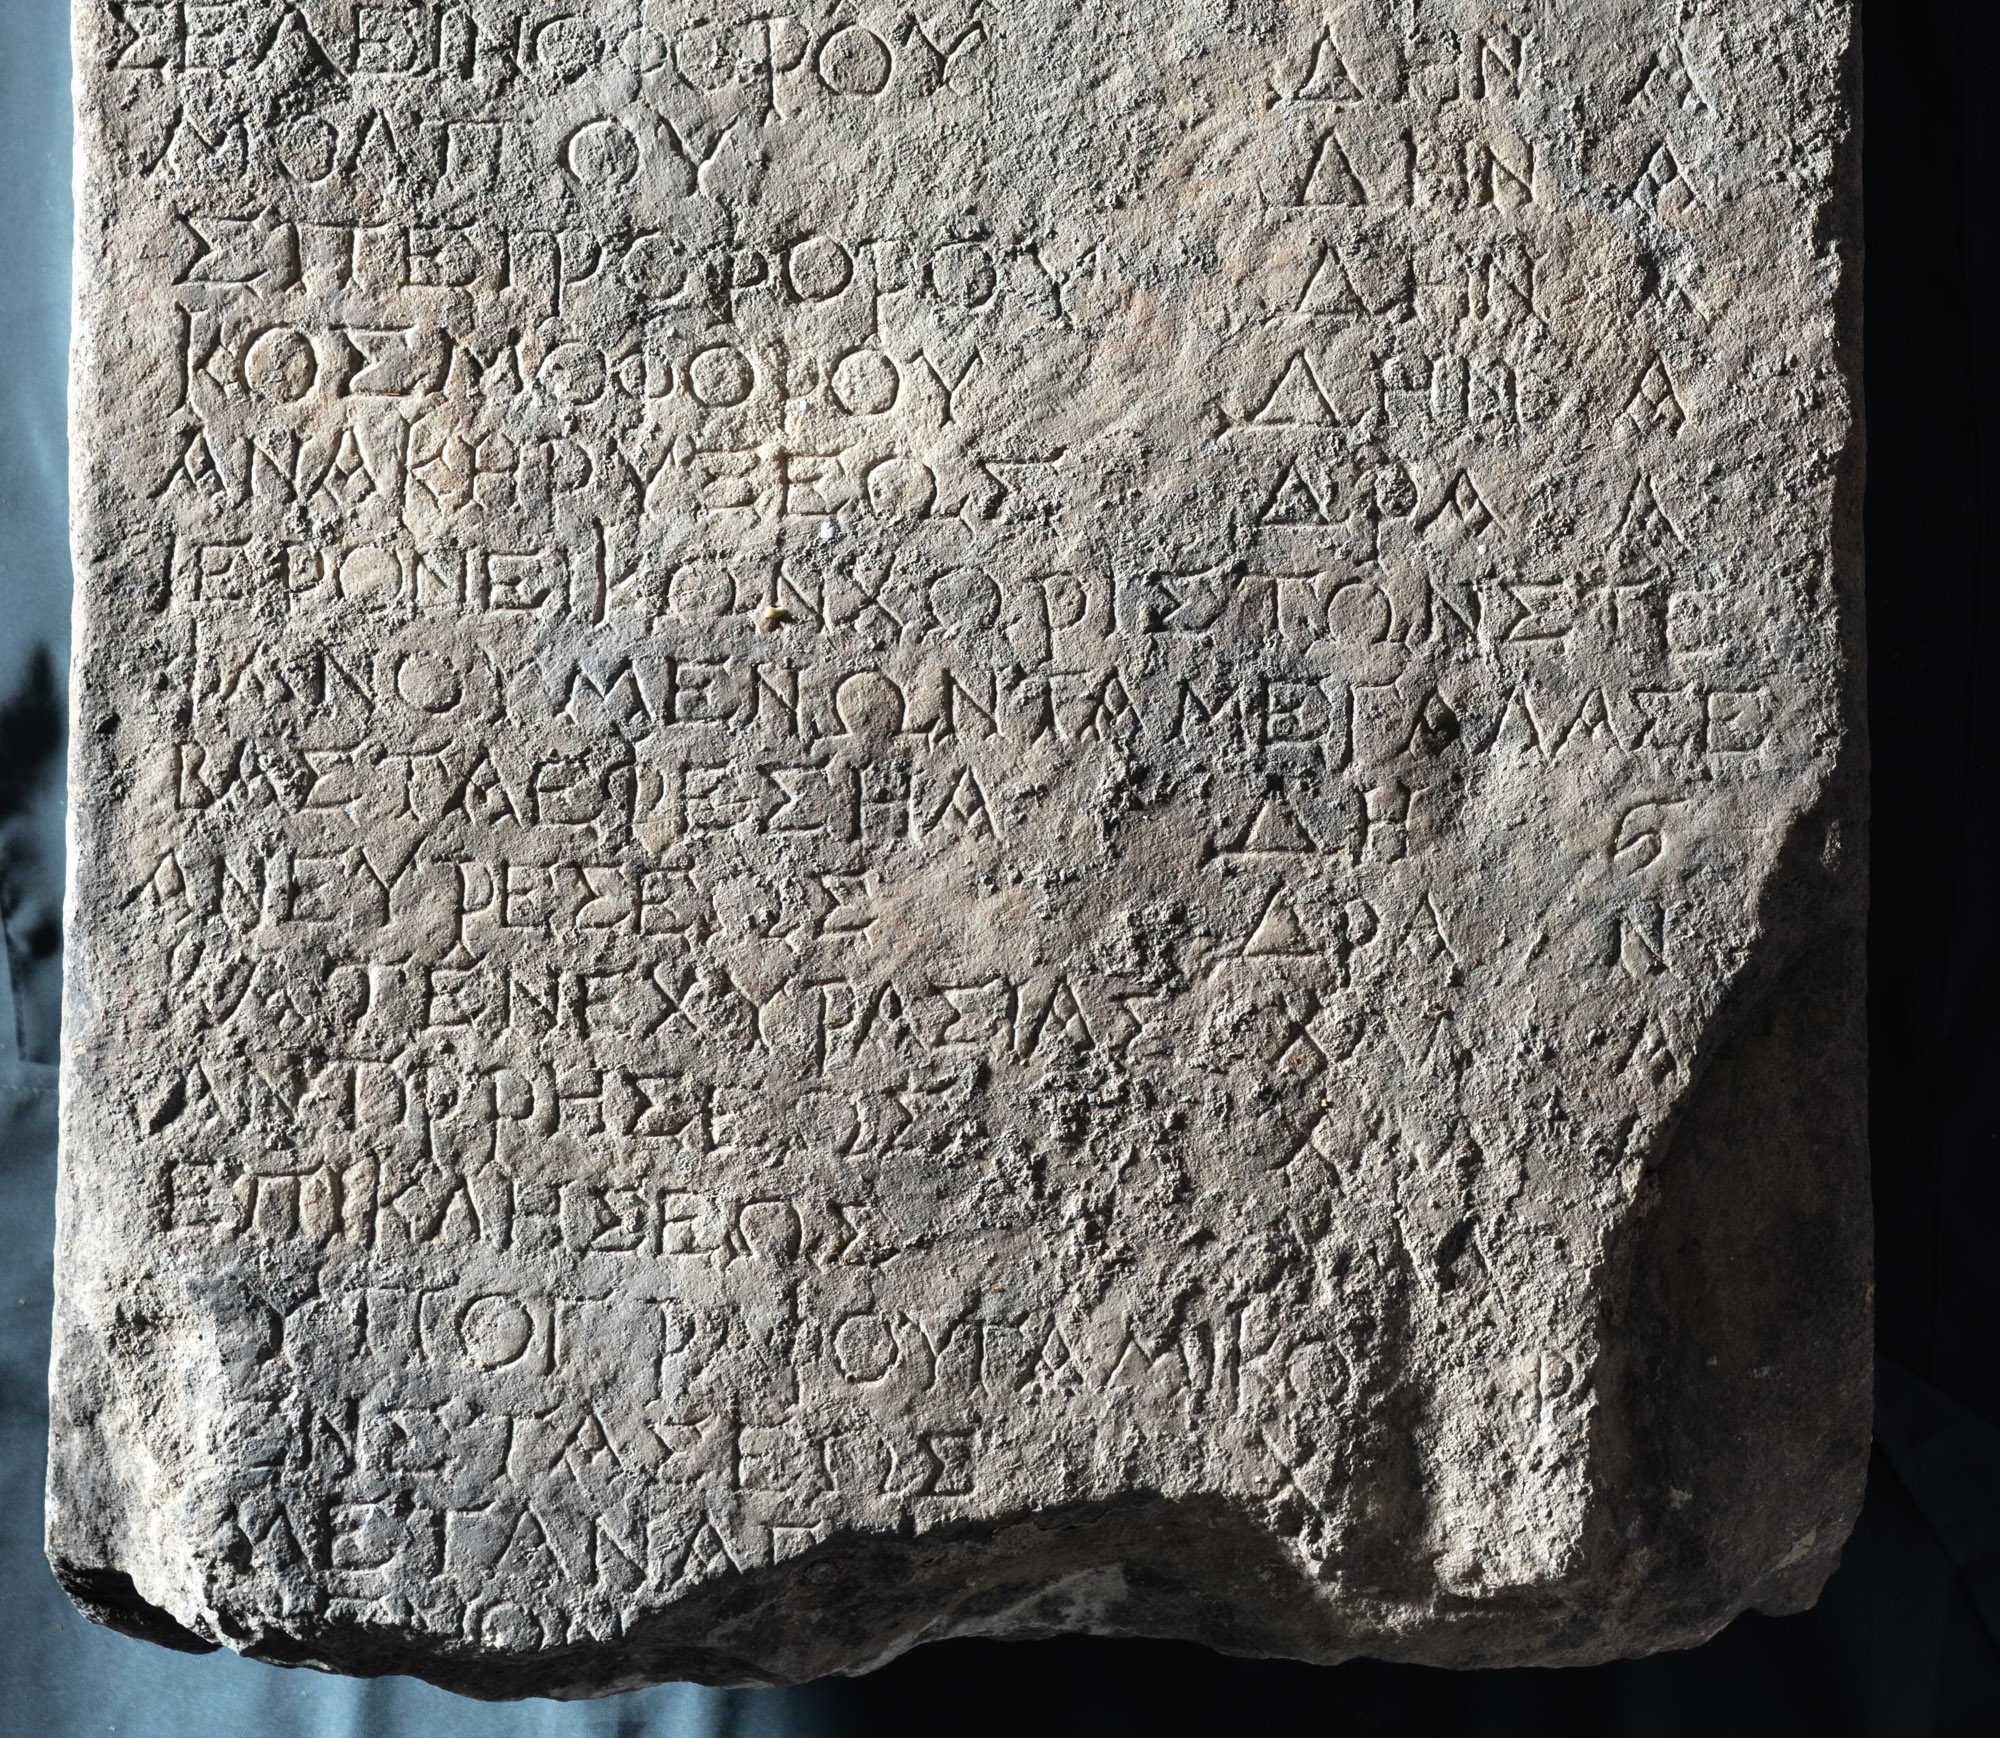 ΣΕΛΕΙΝΟΦΟΡΟΥ ΔΗΝ Α
ΜΟΛΠΟΥ ΔΗΝ Α
ΣΠΕΙΡΟΦΟΡΟΥ ΔΗΝ Α
ΚΟΣΜΟΦΟΡΟΥ ΔΗΝ Α
ΑΝΑΚΗΡΥΞΕΩΣ ΔΡΑ Α
ΙΕΡΟΝΕΙΚΩΝ ΧΩΡΙΣ ΤΩΝ ΣΤΕ
ΦΑΝΟΥΜΕΝΩΝ ΤΑ ΜΕΓΑΛΑ ΣΕ
ΒΑΣΤΑ ΕΦΕΣΗΑ ΔΗ Ϛ
ΑΝΕΥΡΕΣΕΩΣ ΔΡΑ Ν
ΚΑΤΕΝΕΧΥΡΑΣΙΑΣ Α
ΑΝΤΙΡΡΗΣΕΩΣ
ΕΠΙΚΛΗΣΕΩΣ
ΥΠΟΓΡΑΦΟΥ ΓΑΜΙΚΟ
ΕΝΣΤΑΣΕΩΣ
ΜΕΤΑΝΑΓ